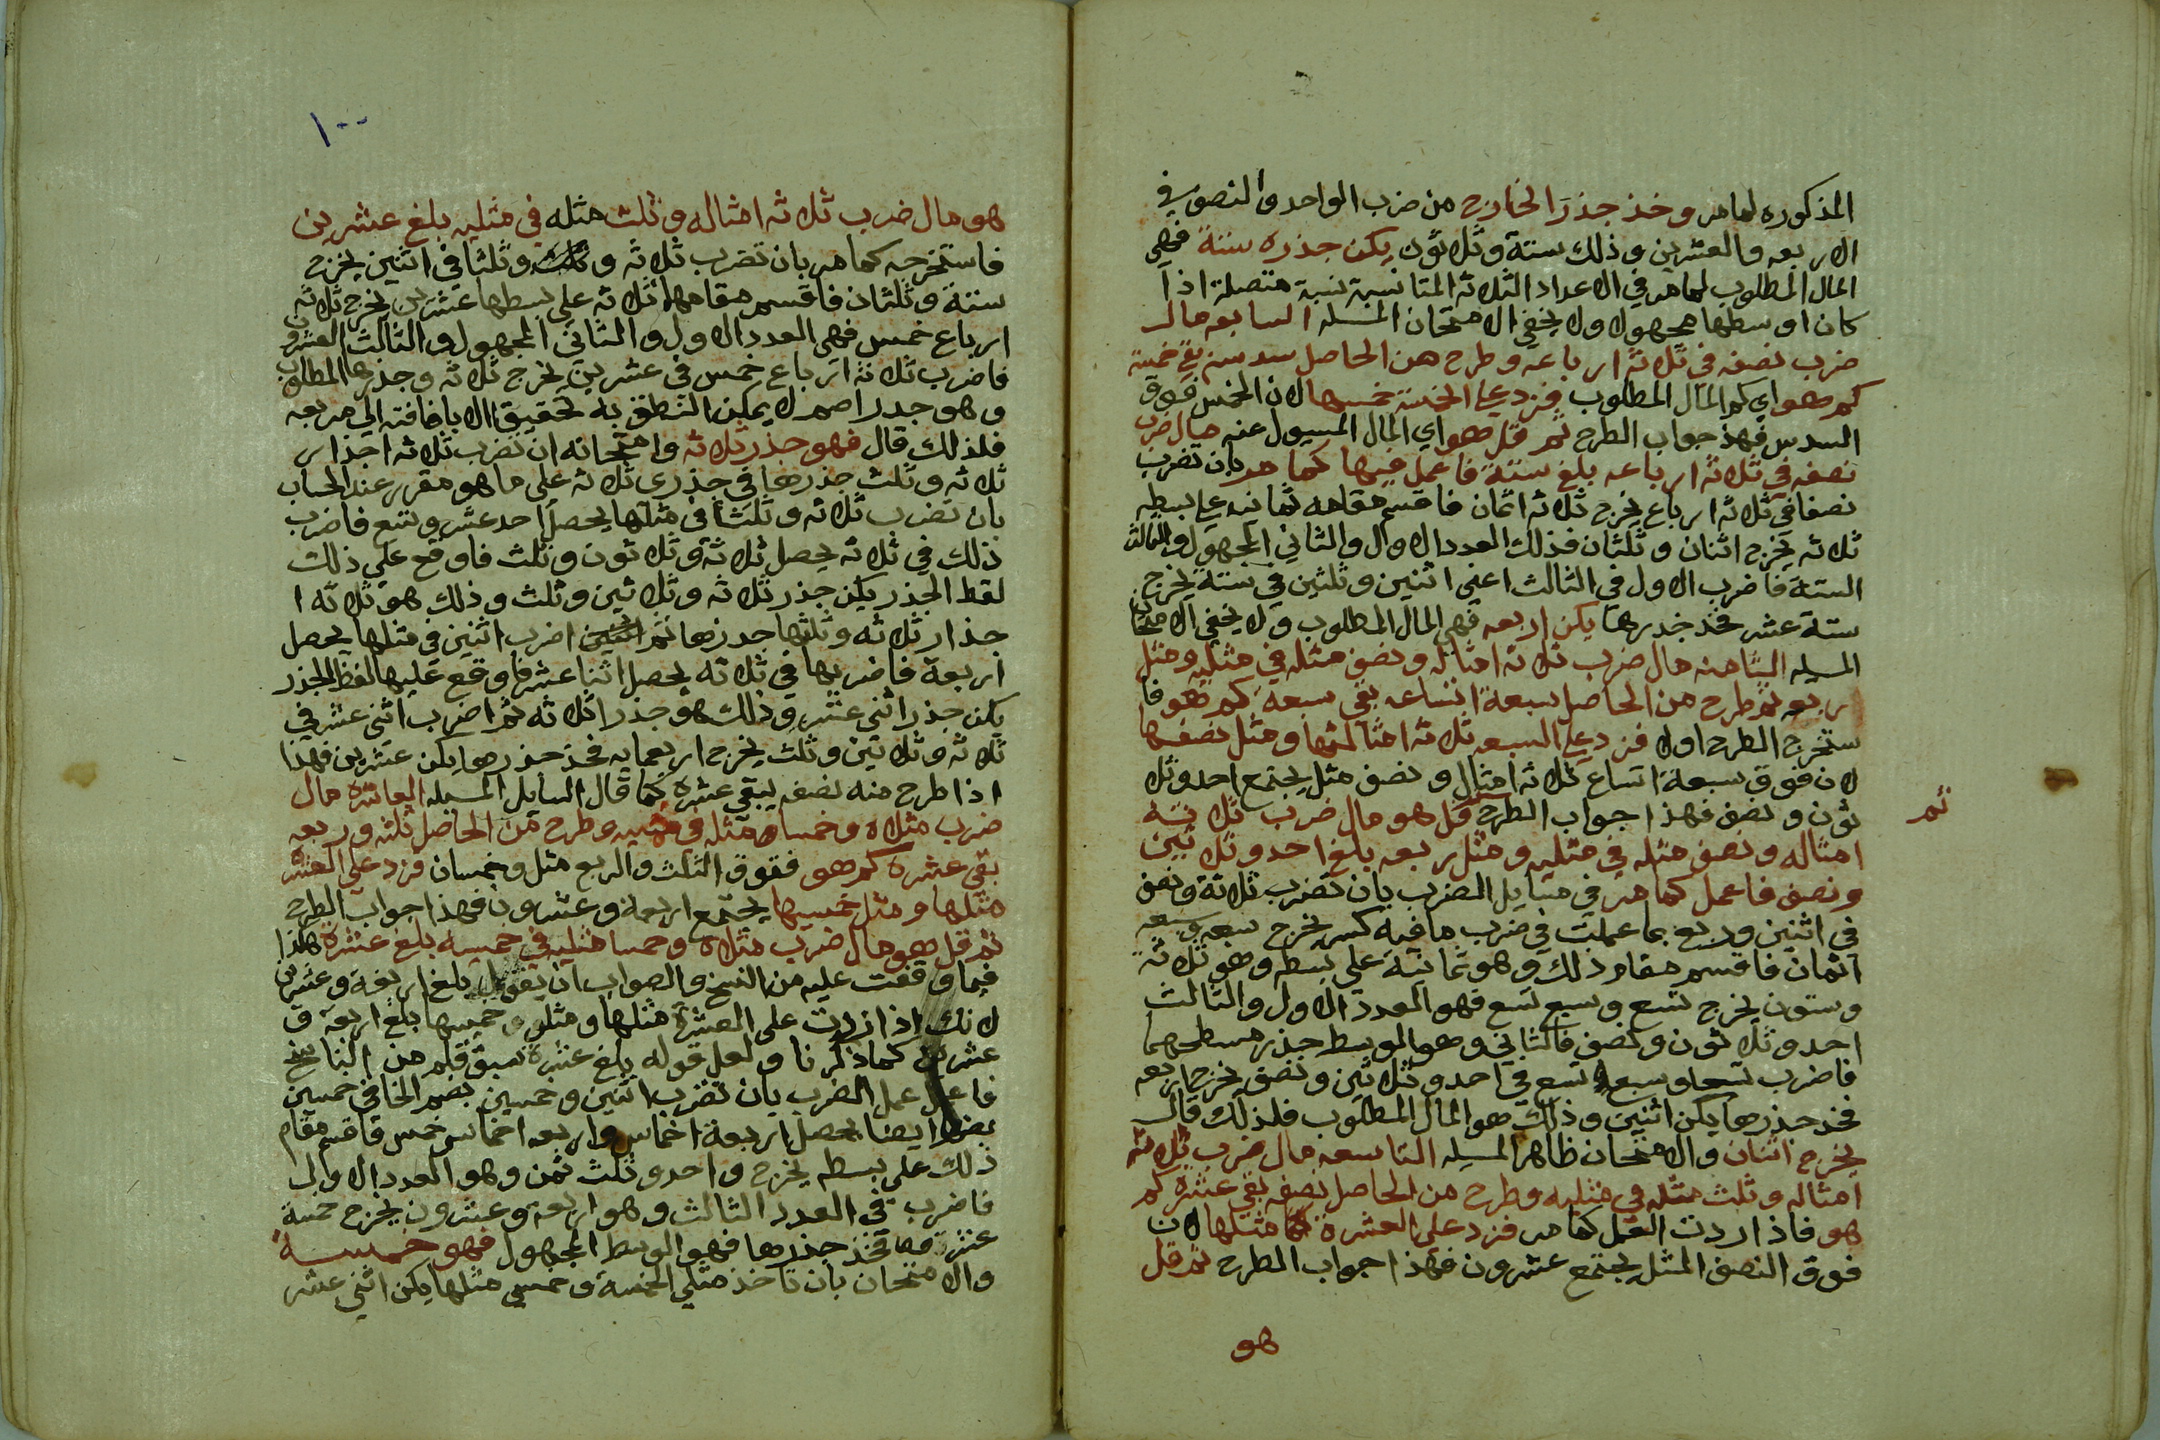 المذكوره لما مر وخذ جذر الخارج من ضرب الواحد والنصف في
الاربعه والعشرين وذلك ستة وثلاثون يكن جذره ستة فهي
المال المطلوب لما مر في الاعداد الثلاثة المتناسبة نسبة متصلة اذا
كان اوسطها مجهولا ولا يخفي الامتحان المسله السابعه مال
ضرب نصفه في ثلاثة ارباعه وطرح من الحاصل سدسه بقي خمسة
كم هو اي كم المال المطلوب فزد علي الخمسة خمسها لان الخمس فوق
السدس فهذ جواب الطرح ثم قل هو اي المال المسيول عنه مال ضرب
نصفه في ثلاثة ارباعه بلغ ستة فاعمل فيها كما مر بان تضرب
نصفا في ثلاثة ارباع يخرج ثلاثة اثمان فاقسم مقامه ثمانيه علي بسطه
ثلاثه يخرج اثنان وثلثان فذلك العدد الاول والثاني المجهول والثالث
الستة فاضرب الاول في الثالث اعني اثنين وثلثين في ستة يخرج
ستة عشر فخذ جذرها يكن اربعه فهي المال المطلوب ولا يخفي الامتحان
المسيله الثامنه مال ضرب ثلاثة امثاله ونصف مثله في مثليه ومثل
ربعه ثم طرح من الحاصل سبعة اتساعه بقي سبعة كم هو فا
ستخرج الطرح اولا فزد علي السبعه ثلاثة امثالها ومثل نصفها
لان فوق سبعة اتساع ثلاثه امثال ونصف مثل يجتمع احد وثلا
ثون ونصف فهذا جواب الطرح قل هو مال ضرب ثلاثة
ثم
امثاله ونصف مثله في مثليه ومثل ربعه بلغ احد وثلاثين
ونصف فاعمل كما مر في مسايل الضرب بان تضرب ثلاثة ونصف
في اثنين وربع بما عملت في ضرب ما فيه كسر يخرج سبعه وسبعه
اثمان فاقسم مقام ذلك وهو ثمانية علي بسطه وهو ثلاثة
وستون يخرج تسع وسبع تسع فهو العدد الاول والثالث
احد وثلاثون ونصف فالثاني وهو الوسط جذر مسطحهما
فاضرب تسعا وسبع تسع في احد وثلاثين ونصف يخرج اربعه
فخذ جذرها يكن اثنين وذلك هو المال المطلوب فلذلك قال
يخرج اثنان والامتحان ظاهر المسيله التاسعه مال ضرب ثلاثة
امثاله وثلث مثله في مثليه وطرح من الحاصل نصفه بقي عشرة كم
هو فاذا اردت العمل كما مر فزد علي العشرة مثلها لان
فوق النصف المثل يجتمع عشرون فهذا جواب الطرح ثم قل
هو
١٠٠
هو مال ضرب ثلاثه امثاله وثلث مثله في مثليه بلغ عشرين
فاستخرجه كما مر بان تضرب ثلاثه وثلثا في اثنين يخرج
ستة وثلثان فاقسم مقامها ثلاثه علي بسطها عشرين يخرج ثلاثة
ارباع خمس فهي العدد الاول والثاني المجهول والثالث العشرون
فاضرب ثلاثة ارباع خمس في عشرين يخرج ثلاثه وجذرها المطلوب
وهو جدر اصم لا يمكن النطق به لتحقيق الا باضافته الي مربعه
فلذلك قال فهو جذر ثلاثه وامتحانه ان تضرب ثلاثه اجذار
ثلاثه وثلث جذرها في جذري ثلاثة علي ما هو مقرر عند الحساب
بان تضرب ثلاثه وثلثا في مثلها يحصل احد عشر وتسع فاضرب
ذلك في ثلاثه يحصل ثلاثة وثلاثون وثلث فاوقع علي ذلك
لفظ الجذر يكن جذر ثلاثه وثلاثين وثلث وذلك هو ثلاثه ا
جذار ثلاثه وثلثها جدرها ثم اضرب اثنين في مثلها يحصل
اربعة فاضربها في ثلاثه يحصل اثنا عشر فاوقع عليها لفظ الجذر
يكن جذر اثني عشر وذلك هو جذرا ثلاثه ثم اضرب اثني عشر في
ثلاثه وثلاثين وثلث يخرج اربعمايه فخذ جذرها يكن عشرين فهذا
اذا طرح منه نصفه يبقي عشرة كما قال السايل المسيله العاشره مال
ضرب مثلاه وخمسا مثله في مثليه وطرح من الحاصل ثلثه وربعه
بقي عشرة كم هو ففوق الثلث والربع مثل وخمسان فزد علي العشرة
مثلها ومثل خمسيها يجتمع اربعة وعشرون فهذا جواب الطرح
ثم قل هو مال ضرب مثلاه وخمسا مثليه في خمسيه بلغ عشرة هكذا
فيما وقفت عليه من النسخ والصواب ان يقول بلغ اربعة وعشرين
لانك اذا زدت علي العشرة مثلها ومثل خمسيها بلغ اربعة و
عشرين كما ذكرنا ولعل قوله بلغ عشرة سبق قلم من الناسخ
فاعمل عمل الضرب بان تضرب اثنين وخمسين بضم الخا في خمسين
بضمها ايضا يحصل اربعة اخماس واربعه اخماس خمس فاقسم مقام
ذلك علي بسطه يخرج واحد وثلث ثمن وهو العدد الاول
فاضربه في العدد الثالث وهو اربعة وعشرون يخرج خمسة
عشرة فخذ جذرها فهو الوسط المجهول فهو خمسة
والامتحان بان تاخذ مثلي الخمسة وخمسي مثلها يكن اثني عشر